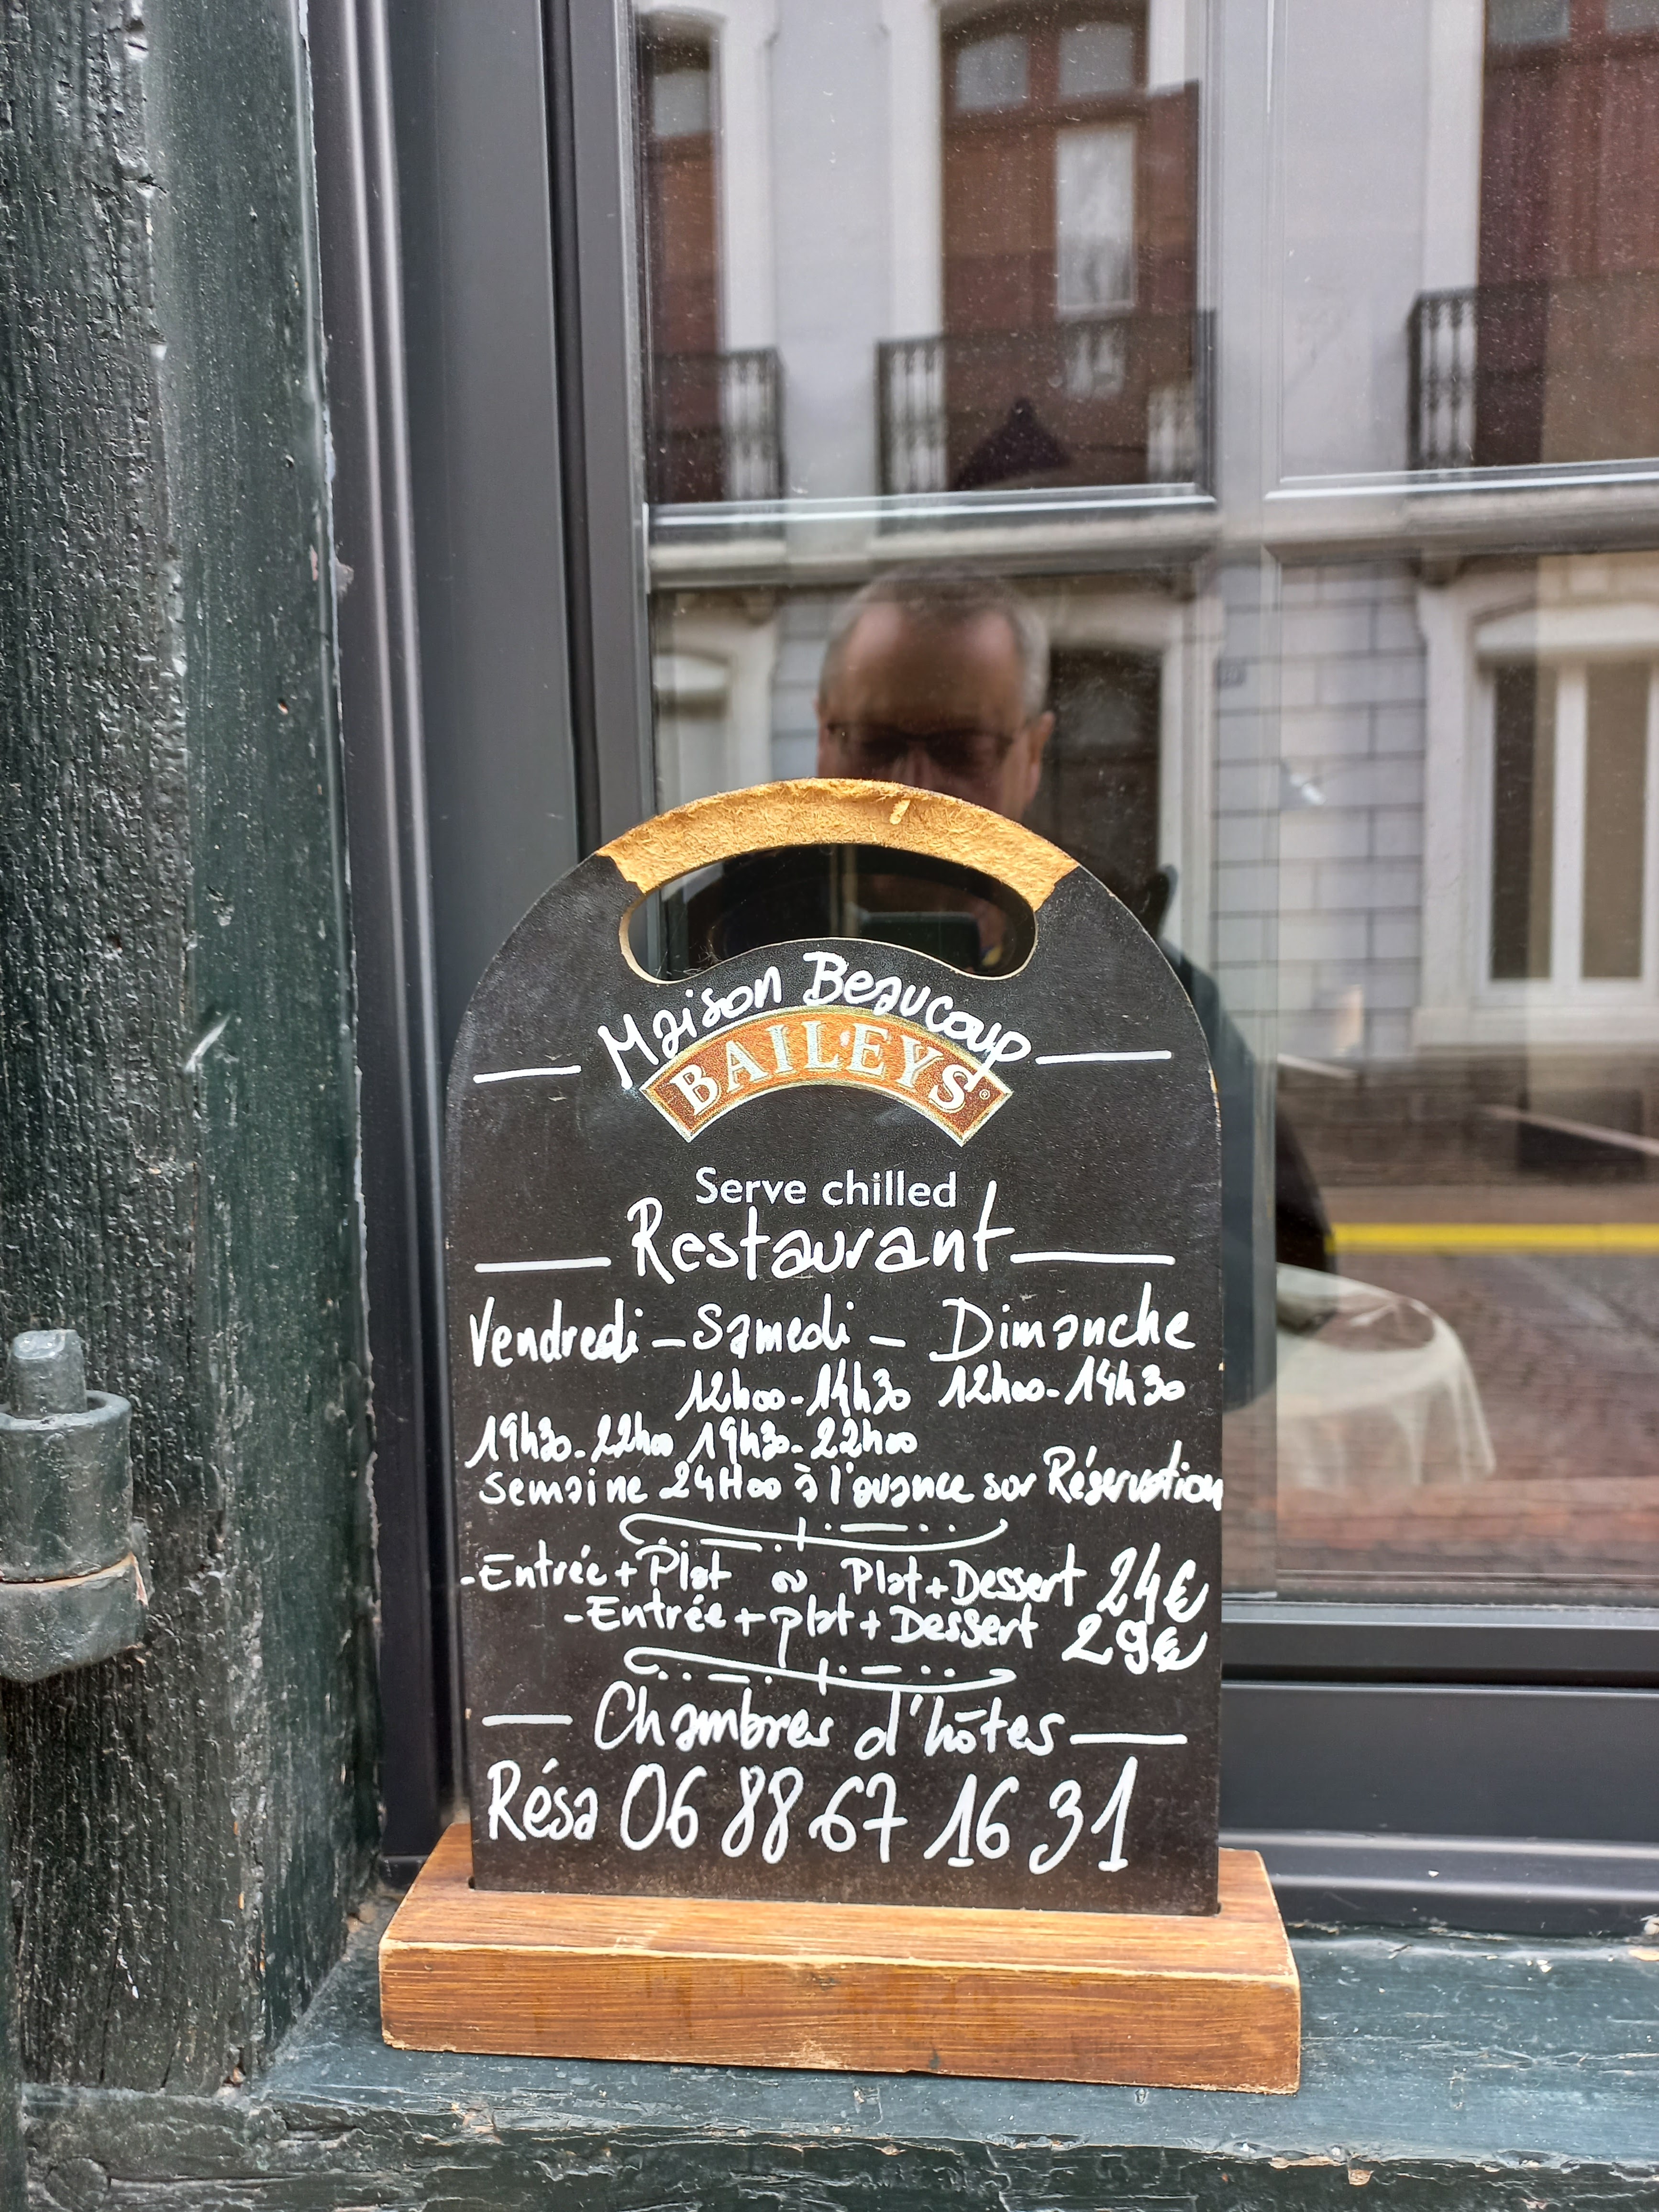 Maison Beaucoup
BAILEYS®
Serve chilled
Restaurant
Vendredi - Samedi - Dimanche
12h00-14h30 12h00-14h30
19h30-22h00 19h30-22h00
Semaine 24H00 à l'avance sur Réservation
-Entrée+Plat ou Plat+Dessert 24€
-Entrée+plat+Dessert 29€
Chambres d'hôtes
Résa 06 88 67 16 31